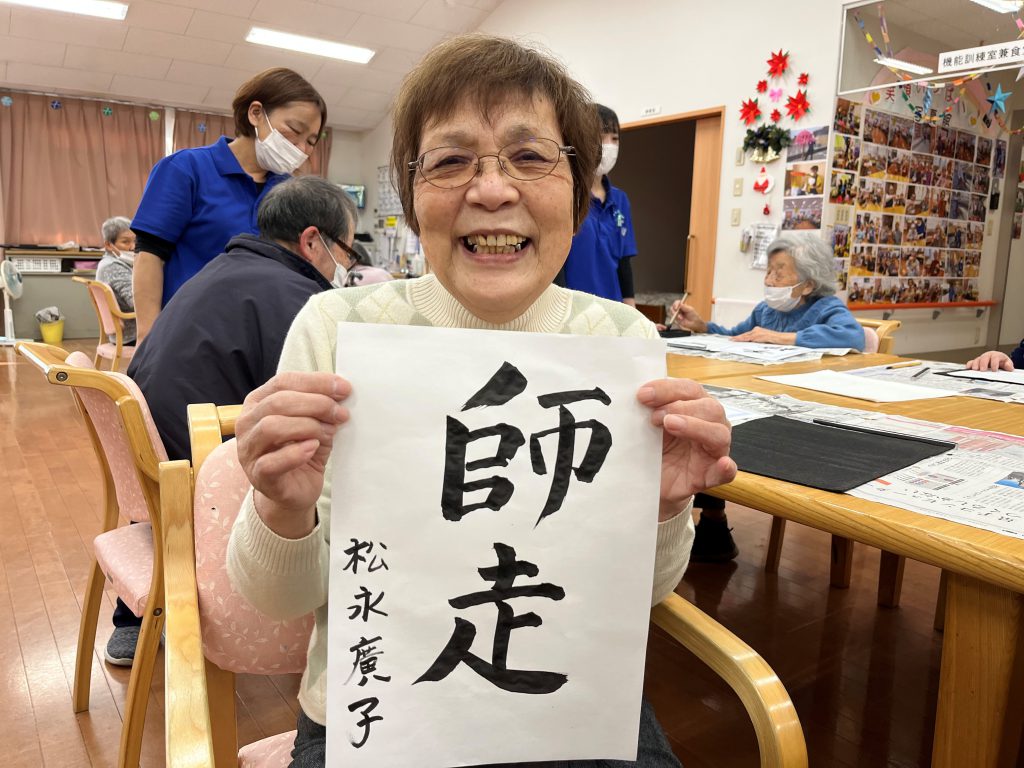 師走
松永廣子
機能訓練室兼食